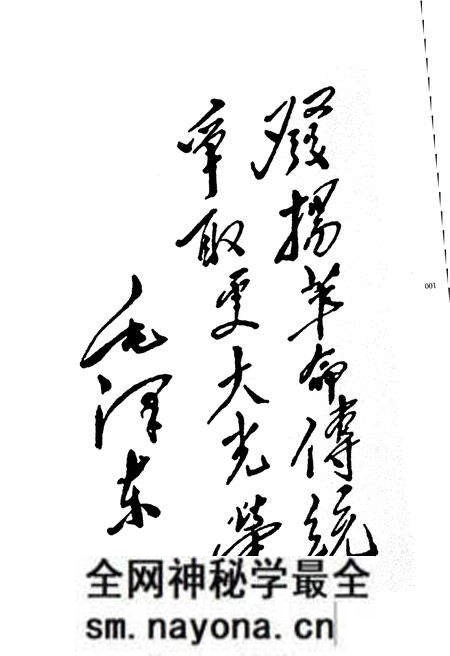 發揚革命傳統
爭取更大光榮
毛澤东
100
全网神秘学最全
sm.nayona.cn